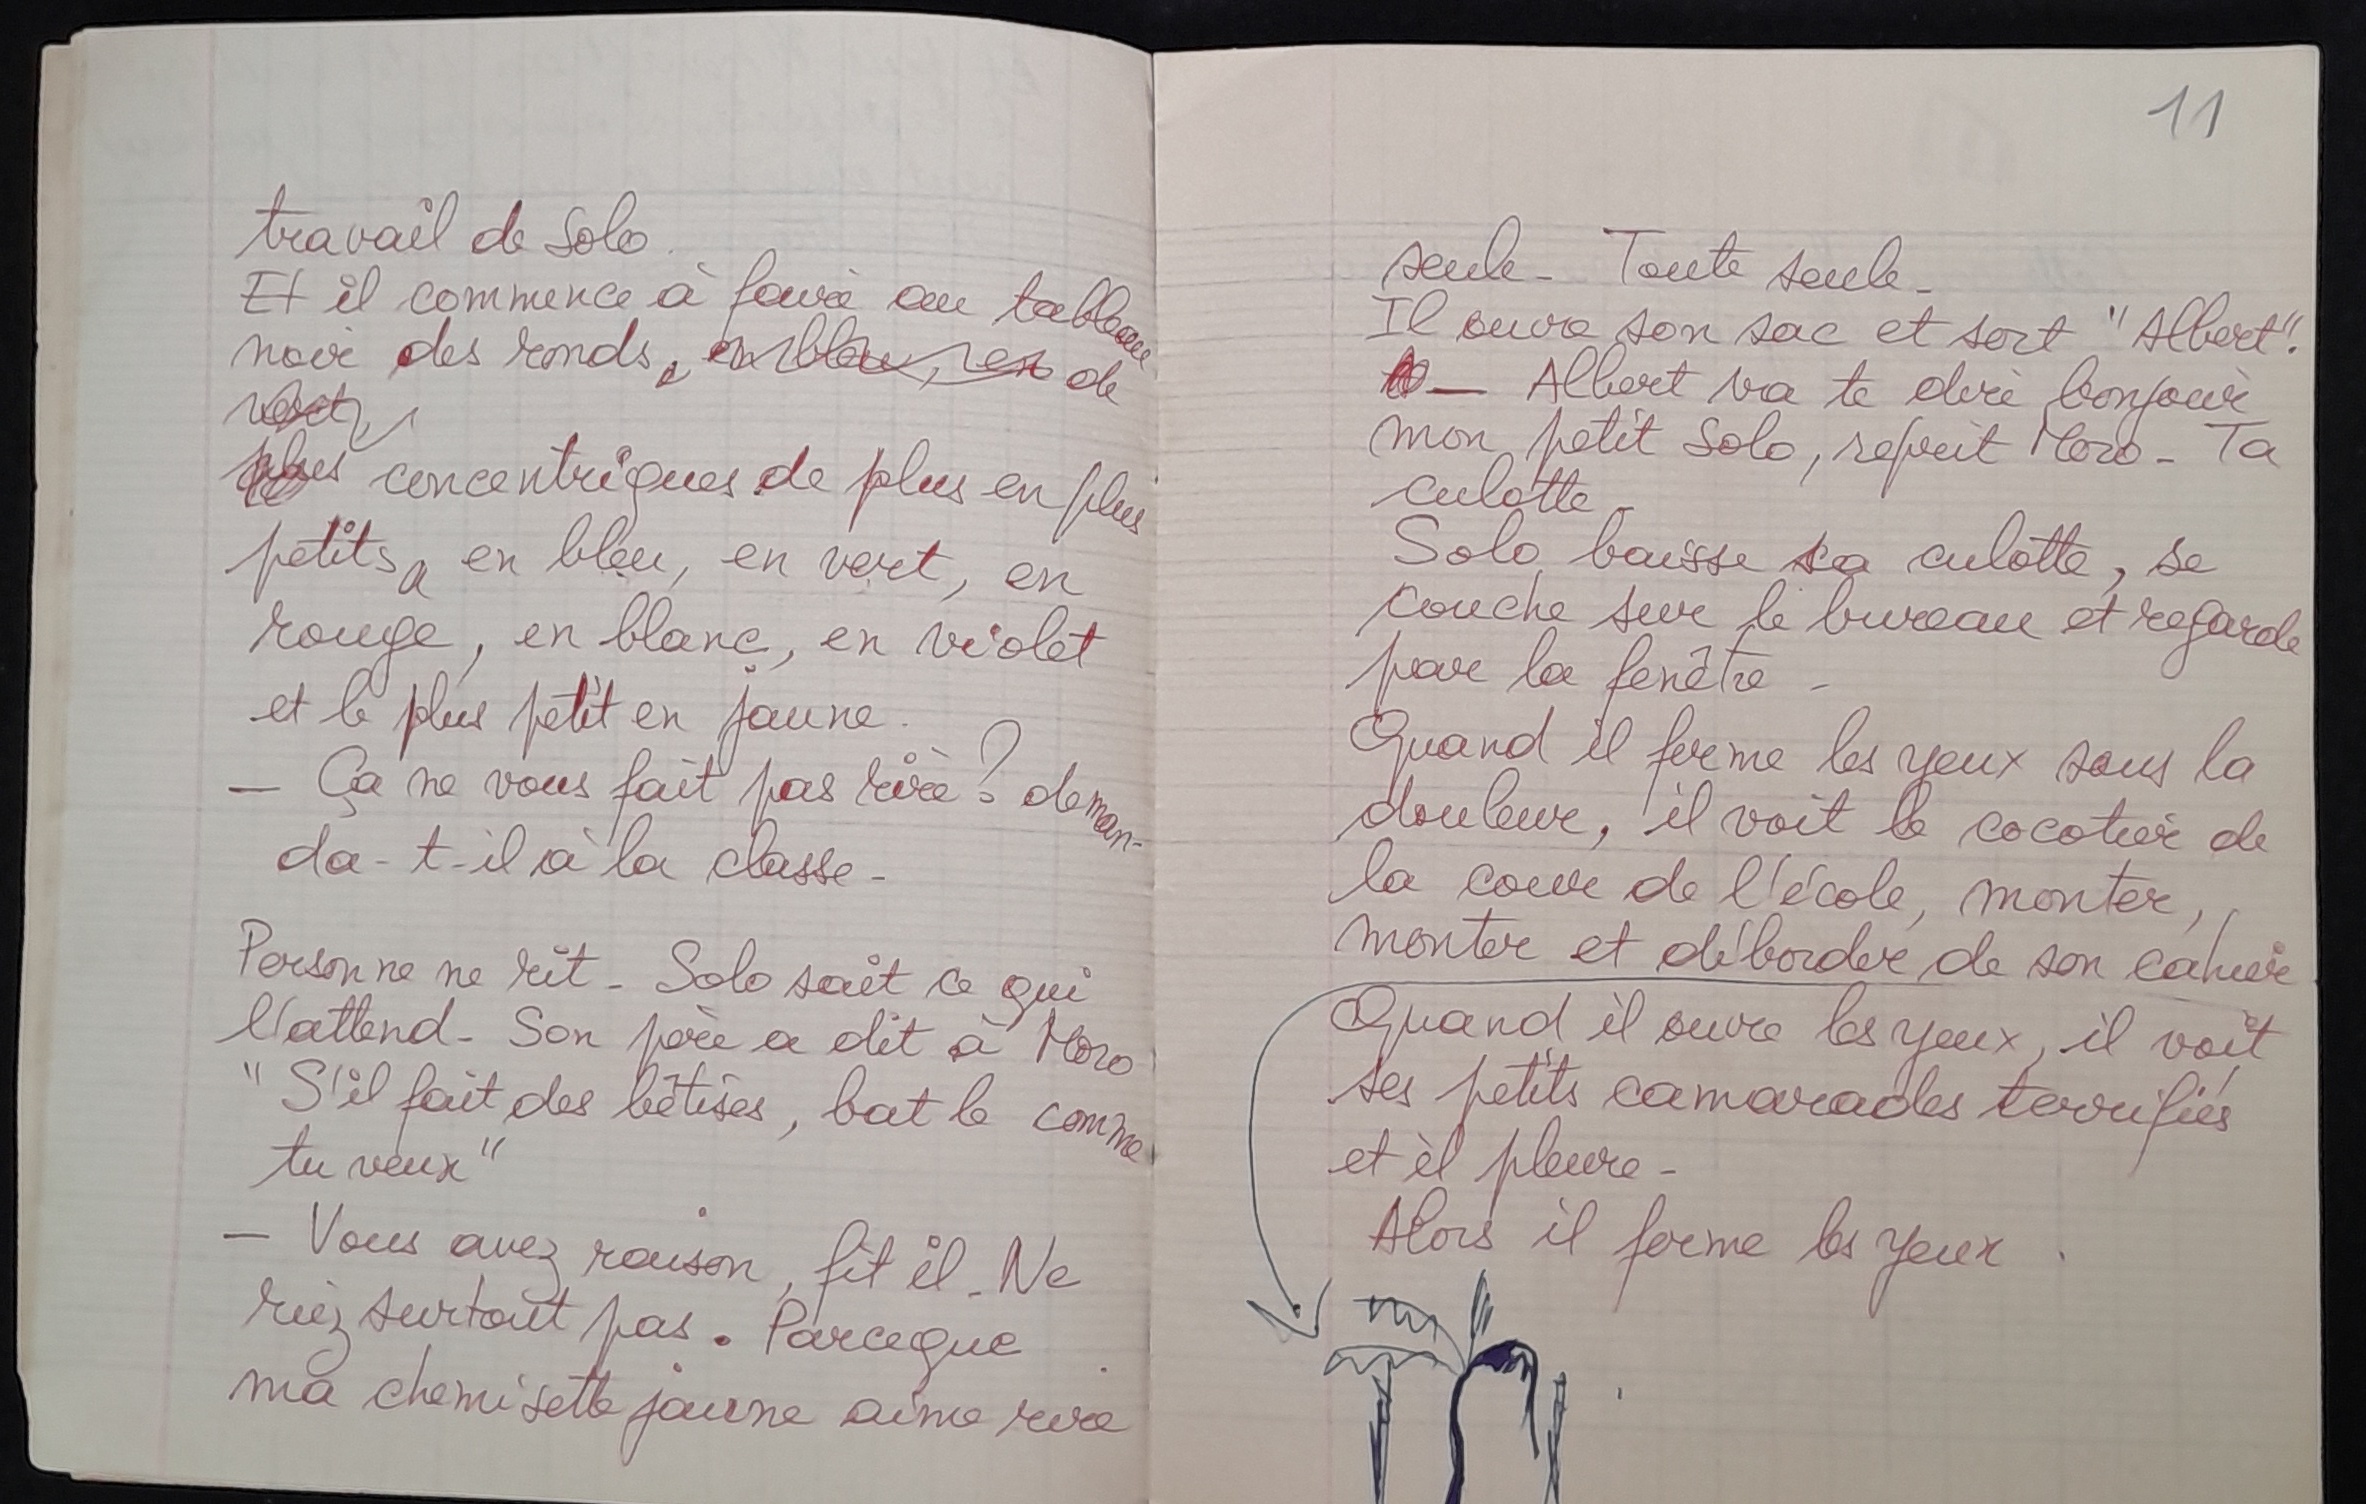 travail de Solo.
Et il commence à faire au tableau
noir des ronds, en bleu, en de
vert,
plus concentriques de plus en plus
petits, en bleu, en vert, en
rouge, en blanc, en violet
et le plus petit en jaune.
— Ça ne vous fait pas rire ? deman-
da-t-il à la classe -
Personne ne rit - Solo sait ce qui
l'attend - Son père a dit à Moro
"S'il fait des bêtises, bat le comme
tu veux"
— Vous avez raison, fit il - Ne
riez surtout pas. Parceque
ma chemisette jaune aime rire
11
seule - Toute seule -
Il ouvre son sac et sort "Albert".
— Albert va te dire bonjour
mon petit Solo, reprit Moro - Ta
culotte -
Solo baisse sa culotte, se
couche sur le bureau et regarde
par la fenêtre -
Quand il ferme les yeux sous la
douleur, il voit le cocotier de
la cour de l'école, monter,
monter et déborder de son cahier
Quand il ouvre les yeux, il voit
ses petits camarades terrifiés
et il pleure -
Alors il ferme les yeux.